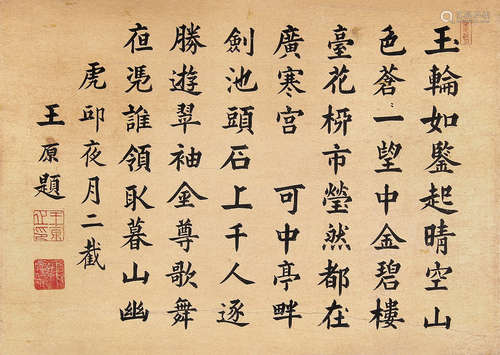 玉輪如鑒起晴空山
色蒼〻一望中金碧樓
臺花枡市瑩然都在
廣寒宮 可中亭畔
劍池頭石上千人逐
勝遊翠袖金尊歌舞
夜憑誰領取暮山幽
虎邱夜月二截
王原題